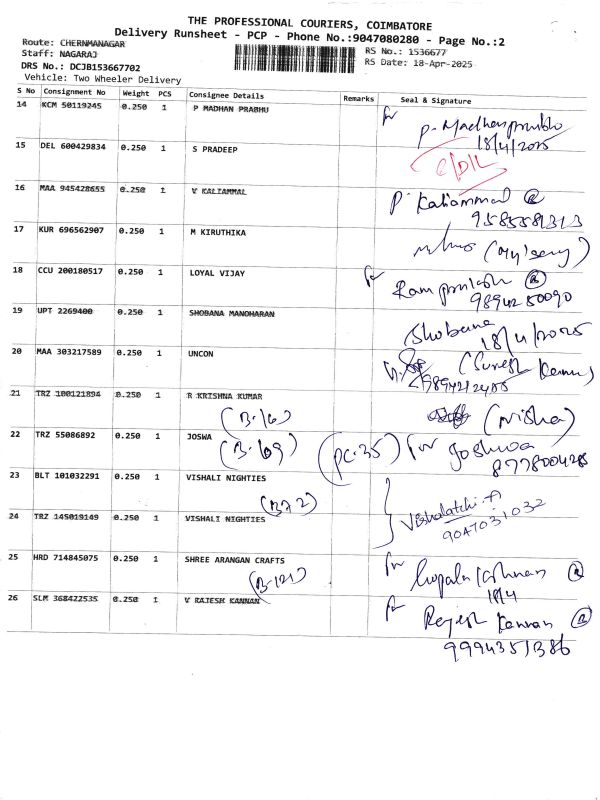 THE PROFESSIONAL COURIERS, COIMBATORE
Delivery Runsheet - PCP - Phone No.:9047080280 - Page No.:2
Route: CHERNMANAGAR
RS No.: 1536677
Staff: NAGARAJ
RS Date: 18-Apr-2025
DRS No.: DCJB153667702
Vehicle: Two Wheeler Delivery
S No Consignment No Weight PCS Consignee Details Remarks Seal & Signature
14 KCM 50119245 0.250 1 P MADHAN PRABHU for P. Madhan prabhu
18/4/2025
15 DEL 600429834 0.250 1 S PRADEEP
16 MAA 945428655 0.250 1 V KALIAMMAL P. Kaliammal
9585581313
17 KUR 696562907 0.250 1 M KIRUTHIKA
18 CCU 200180517 0.250 1 LOYAL VIJAY for Ram prakash
9894280090
19 UPT 2269400 0.250 1 SHOBANA MANOHARAN Shobana
18/4/2025
20 MAA 303217589 0.250 1 UNCON (Suresh Kannu)
21 TRZ 100121894 0.250 1 R KRISHNA KUMAR (Nisha)
(B-16)
22 TRZ 55086892 0.250 1 JOSWA (B-69) (PC-35) for Joshwa
8778004285
23 BLT 101032291 0.250 1 VISHALI NIGHTIES
(B72) Vishalatchi.A
24 TRZ 145019149 0.250 1 VISHALI NIGHTIES
9047031032
25 HRD 714845075 0.250 1 SHREE ARANGAN CRAFTS for Gopala Krishnan
(B-121) 18/4
26 SLM 368422535 0.250 1 V RAJESH KANNAN for Rajesh Kannan
9994351386